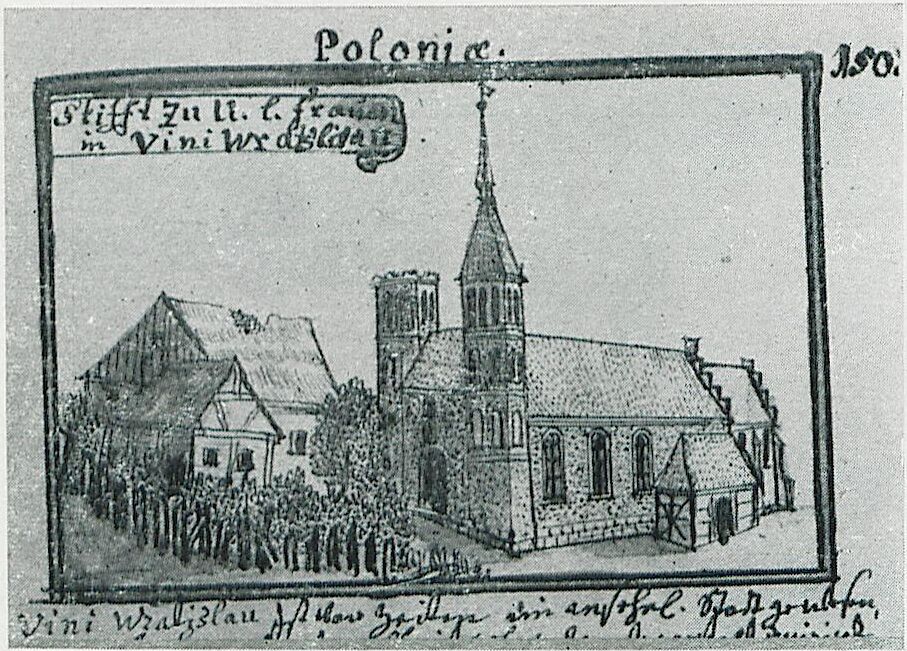 Poloniæ.
150.
Stifft zu U. l. frauen
in Vini Wratzlau
Vini Wratzlau ist vor Zeiten ein ansehl. Stadt gewesen,